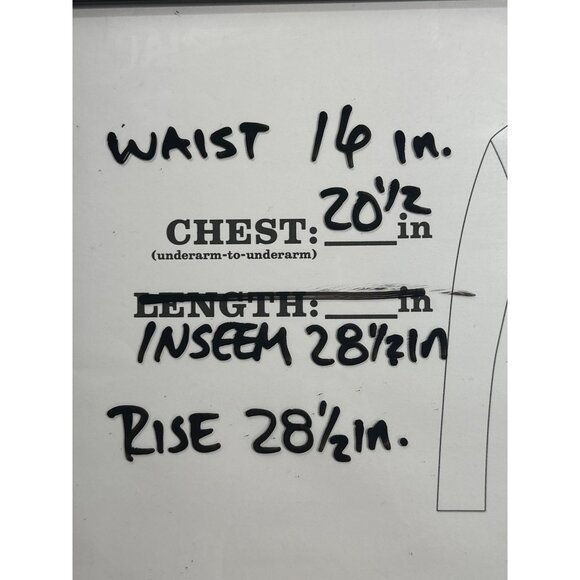 WAIST 16 in.
CHEST: 20 1/2 in
(underarm-to-underarm)
LENGTH: ____in
INSEEM 28 1/2 in
RISE 28 1/2 in.